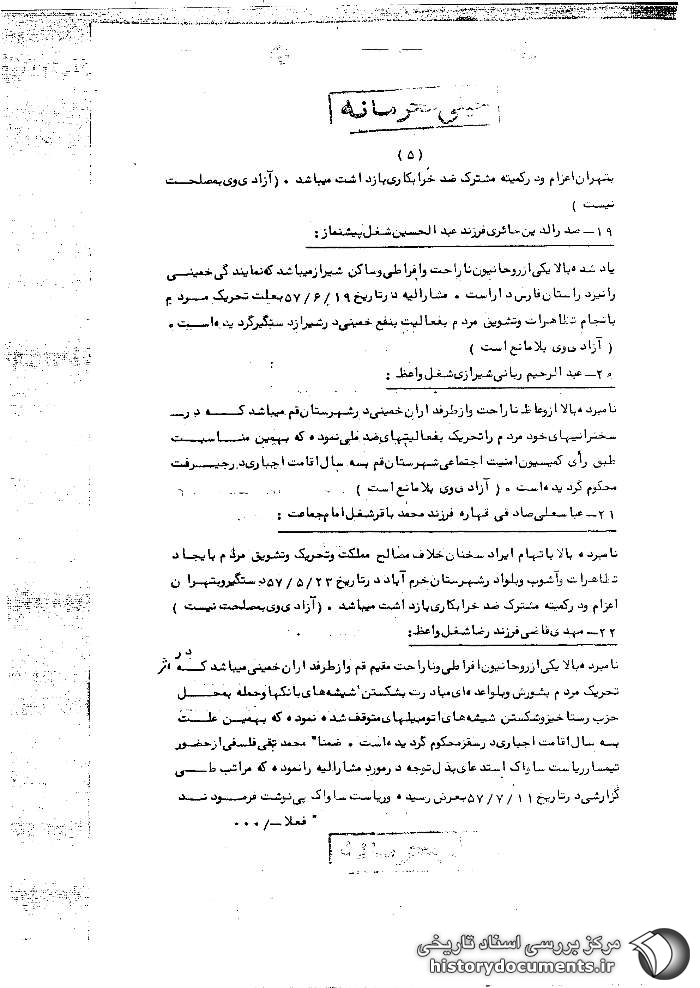 خیلی محرمانه
(۵)
بتهران اعزام و در کمیته مشترک ضد خرابکاری بازداشت میباشد . (آزادی وی بمصلحت
نیست )
۱۹ـ صدرالدین حائری فرزند عبدالحسین شغل پیشنماز :
یاد شده بالا یکی از روحانیون ناراحت و افراطی و ساکن شیراز میباشد که نمایندگی خمینی
را نیز در استان فارس داراست . مشارالیه در تاریخ ۵۷/۶/۱۹ بعلت تحریک مردم
بانجام تظاهرات و تشویق مردم بفعالیت بنفع خمینی در شیراز دستگیر گردیده است .
( آزادی وی بلامانع است )
۲۰ـ عبدالرحیم ربانی شیرازی شغل واعظ :
نامبرده بالا از وعاظ ناراحت و از طرفداران خمینی در شهرستان قم میباشد کـه در
سخنرانیهای خود مردم را تحریک بفعالیتهای ضد ملی نموده که بهمین مناسبت
طبق رأی کمیسیون امنیت اجتماعی شهرستان قم بسه سال اقامت اجباری در جیرفت
محکوم گردیده است . ( آزادی وی بلامانع است )
۲۱ـ عباسعلی صادقی قهاره فرزند محمد باقر شغل امام جماعت :
نامبرده بالا باتهام ایراد سخنان خلاف مصالح مملکت و تحریک و تشویق مردم بایجاد
تظاهرات و آشوب و بلوا در شهرستان خرم آباد در تاریخ ۵۷/۵/۲۳ دستگیر و بتهران
اعزام و در کمیته مشترک ضد خرابکاری بازداشت میباشد . (آزادی وی بمصلحت نیست )
۲۲ـ مهدی قاضی فرزند رضا شغل واعظ :
نامبرده بالا یکی از روحانیون افراطی و ناراحت مقیم قم و از طرفداران خمینی میباشد کـه در اثر
تحریک مردم بشورش و بلوا عده ای مبادرت بشکستن شیشه های بانکها و حمله بمحل
حزب رستاخیز و شکستن شیشه های اتومبیلهای متوقف شده نموده که بهمین علت
بسه سال اقامت اجباری در سقز محکوم گردیده است . ضمنا" محمد تقی فلسفی از حضور
تیمسار ریاست ساواک استدعای بذل توجه در مورد مشارالیه را نموده که مراتب طی
گزارشی در تاریخ ۵۷/۷/۱۱ بعرض رسیده و ریاست ساواک پی نوشت فرمودند
" فعلا ـ/۰۰۰
خیلی محرمانه
مرکز بررسی اسناد تاریخی
historydocuments.ir